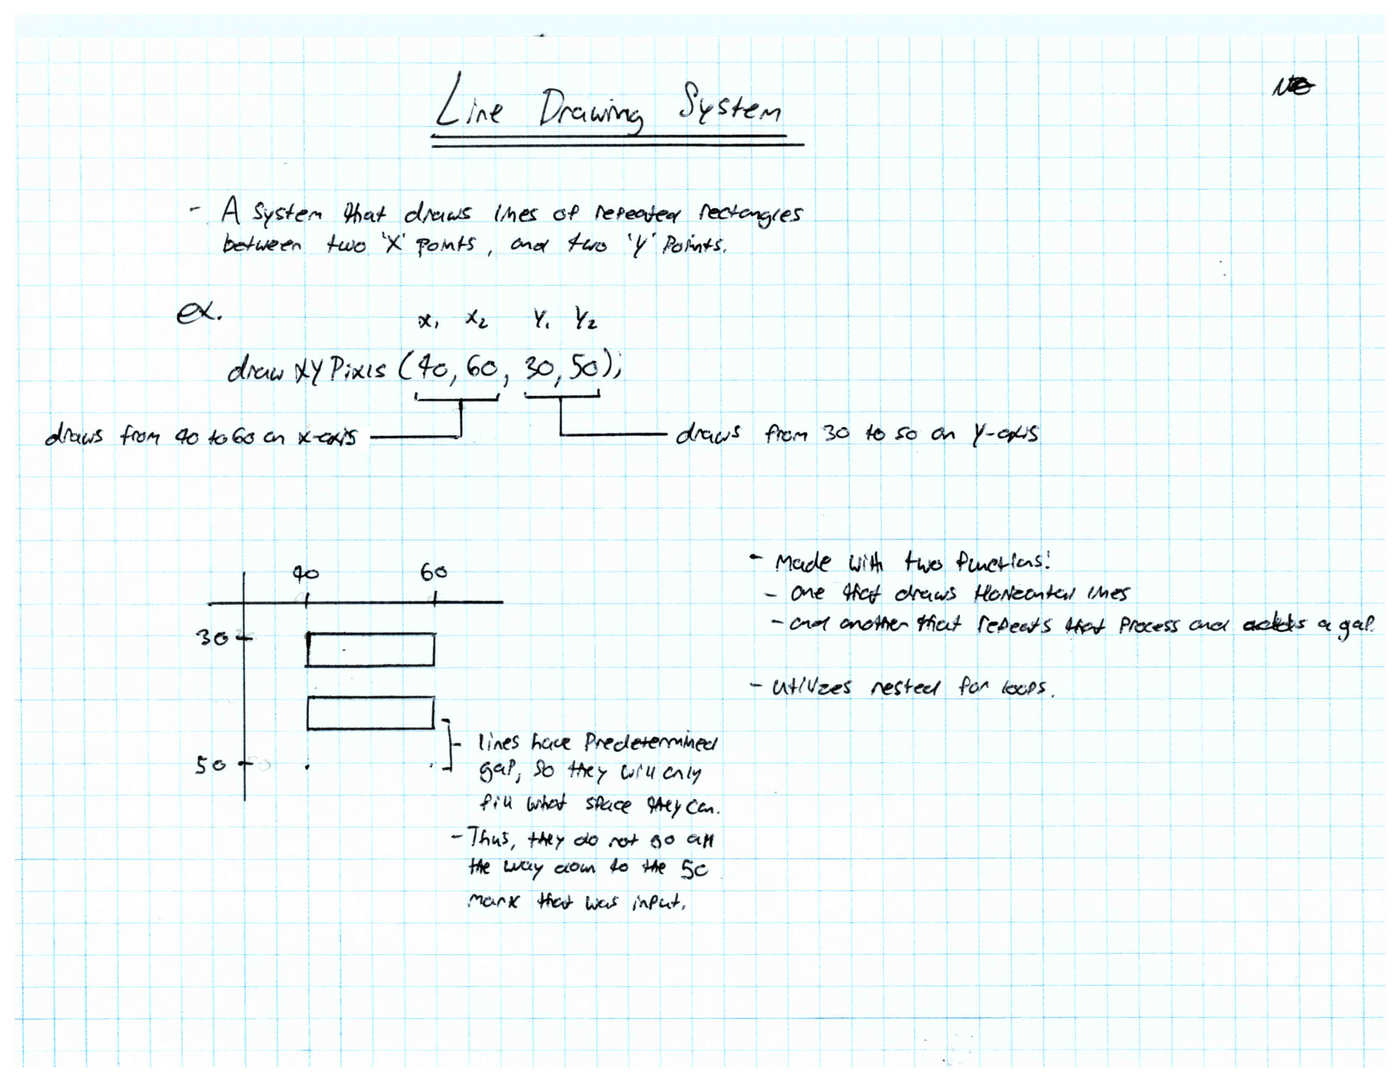 Line Drawing System
- A system that draws lines of repeated rectangles
between two 'X' points, and two 'Y' Points.
ex.
x₁ x₂ Y₁ Y₂
draw XY Pixls (40, 60, 30, 50);
draws from 40 to 60 on x-axis
draws from 30 to 50 on Y-axis
- Made with two functions:
- one that draws Horizontal lines
- and another that repeats that process and adds a gap.
- utilizes nested for loops.
40 60
30
50
lines have Predetermined
gap, so they will only
fill what space they can.
- Thus, they do not go all
the way down to the 50
mark that was input.